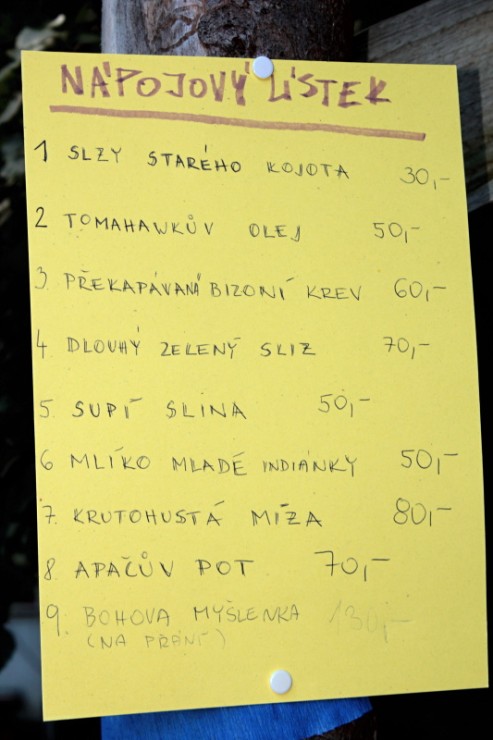 NÁPOJOVÝ LÍSTEK
1 SLZY STARÉHO KOJOTA 30,-
2 TOMAHAWKŮV OLEJ 50,-
3. PŘEKAPÁVANÁ BIZONÍ KREV 60,-
4 DLOUHÝ ZELENÝ SLIZ 70,-
5. SUPÍ SLINA 50,-
6 MLÍKO MLADÉ INDIÁNKY 50,-
7. KRUTOHUSTÁ MÍZA 80,-
8. APAČŮV POT 70,-
9. BOHOVA MYŠLENKA 130,-
(NA PŘÁNÍ)